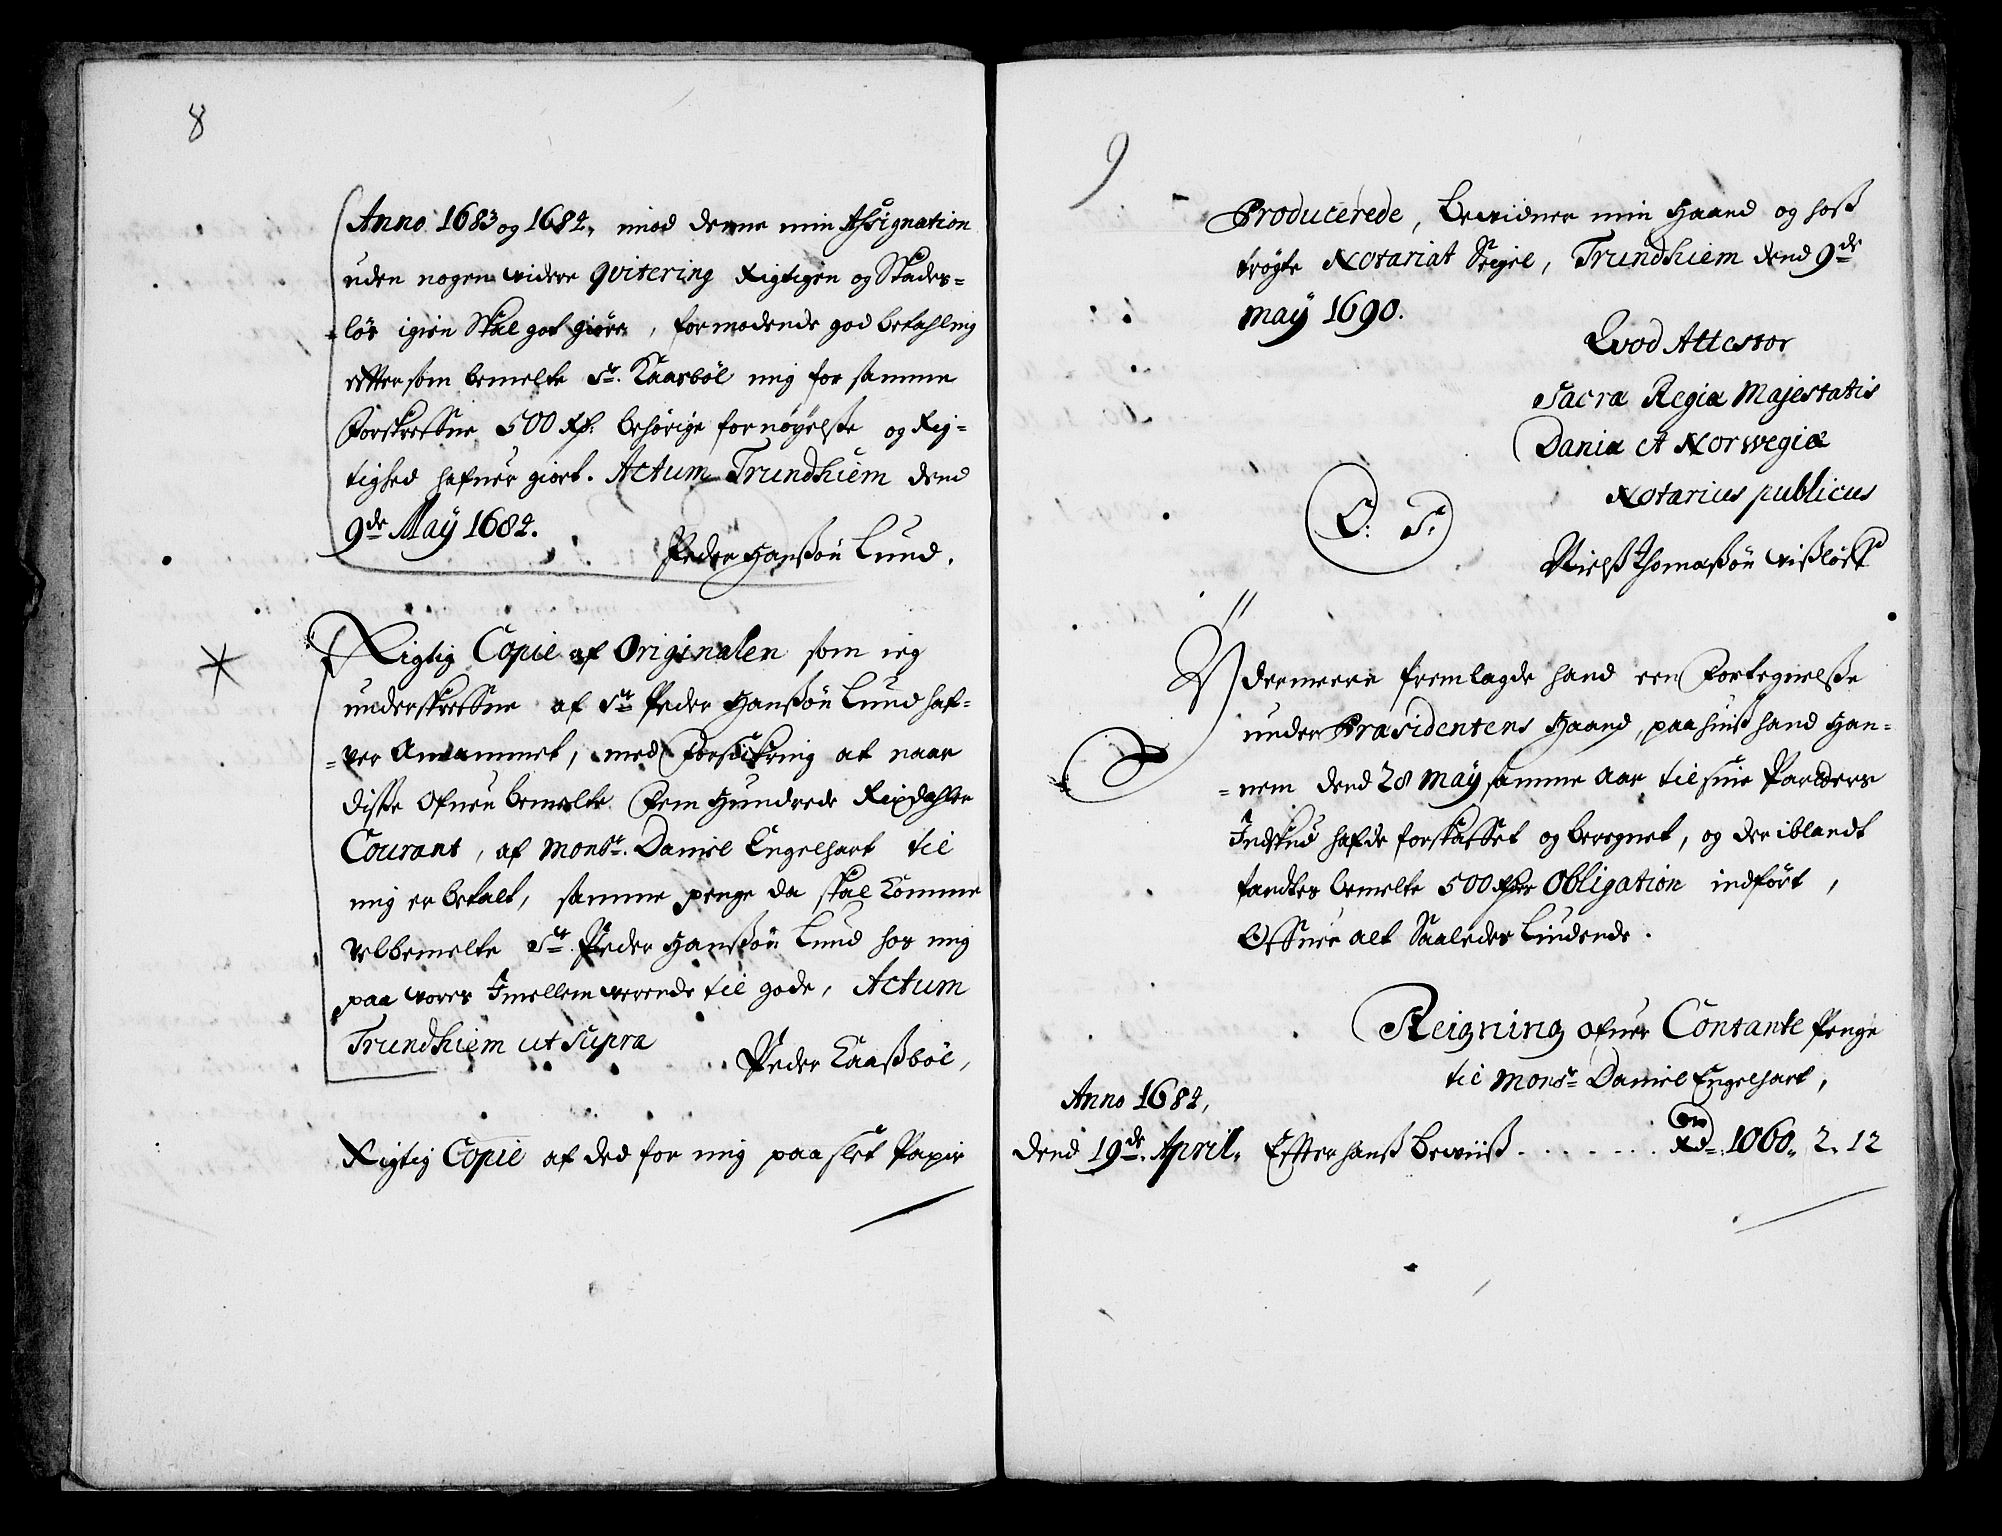 8
Anno 1683 og 1684, imod denne min Assignation
uden nogen videre qvitering Rigtigen og Skades-
løs igien Skal got giøre, formodende god betahling
efftersom bemelte Sr. Kaasbøl mig for samme
Forskrefne 500 Rd: behørige fornøyelsse og Rig-
tighed hafuer giort. Actum Trundhiem dend
9de May 1684.
Peder Hanssøn Lund.
Rigtig Copie af Originalen som ieg
underskrefne af Sr Peder Hanssøn Lund haf-
ver Annammet, med Forsickring at naar
disse Ofuenbemelte Fem Hundrede Rixdahler
Courant, af Monsr. Daniel Engelhart til
mig er betalt, samme penge da skal komme
velbemelte Sr. Peder Hanssøn Lund hos mig
paa vores Imellem verende til gode, Actum
Trundhiem ut supra
Peder Kaassbøl,
Rigtig Copie af ded for mig paa slet Papir
9
Producerede, bevidner min Haand og hoss
trøgte Notariat Seigel, Trundhiem dend 9de
May 1690.
Qvod Attestor
Sacræ Regiæ Majestatis
Daniæ et Norwegiæ
Notarius publicus
L: S:
Nielss Thomassøn
Ydermeere fremlagde hand een Fortegnelsse
under Præsidentens Haand, paa huiss hand Han-
nem dend 28 May samme Aar til sine Parters
Indskud hafde forskaffet og beregnet, og der iblandt
fandtes bemelte 500 Rdr Obligation indført,
Offuer alt Saaledes Liudende.
Reigning ofuer Contante Penge
til Monsr Daniel Engelhart,
Anno 1684,
Dend 19de April, Effter hanss Beviiss . . . . . . . Rd 1060, 2. 12